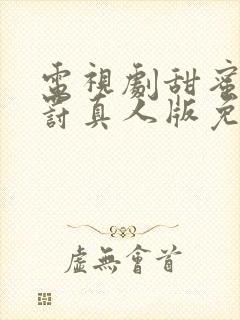 電視劇甜蜜
討真人版免
虛無會首